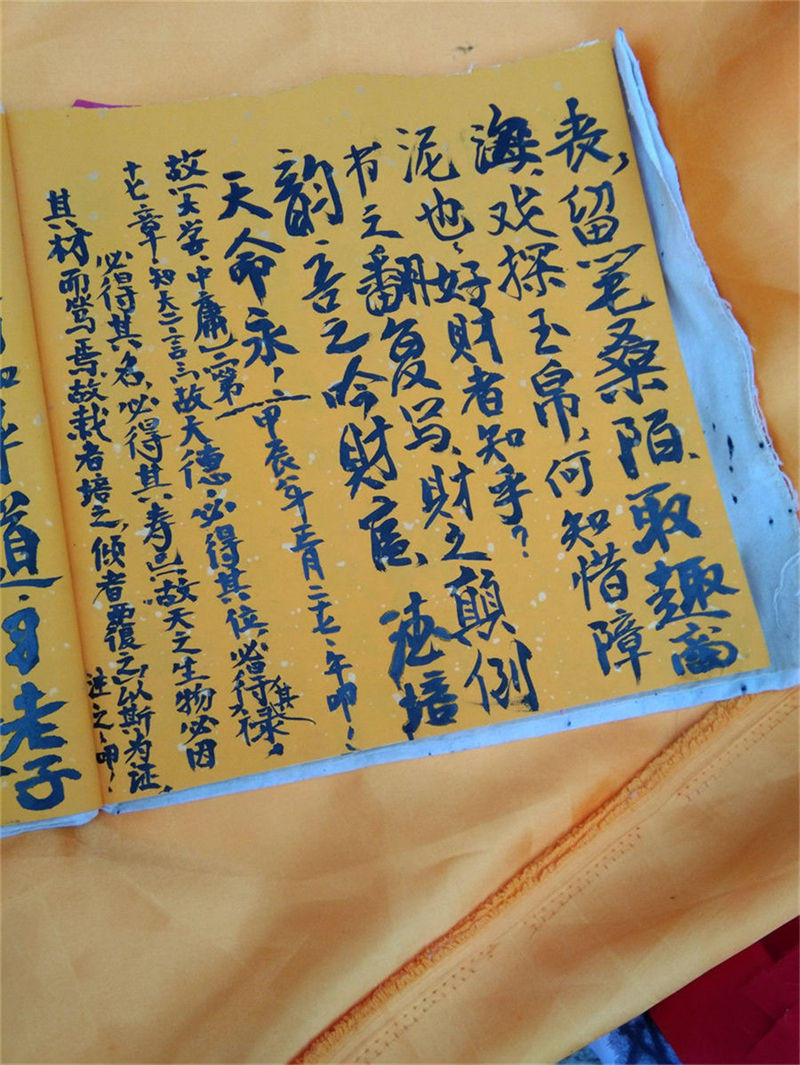 丧,留笔桑陌、取趣商
海、戏探玉帛,何知惜障
泥也、好财者知乎?
书之翻复写、财之颠倒
韵、言之吟财官、德培
天命永,二甲辰年三月二十七、午叩、
故《大学、中庸》第
十七章知天言曰故大德、必得其位、必得其禄,
必得其名,必得其寿,故天之生物必因
其材而笃焉,故栽者培之,倾者覆之,以斯为证,
注之叩!
道
老子